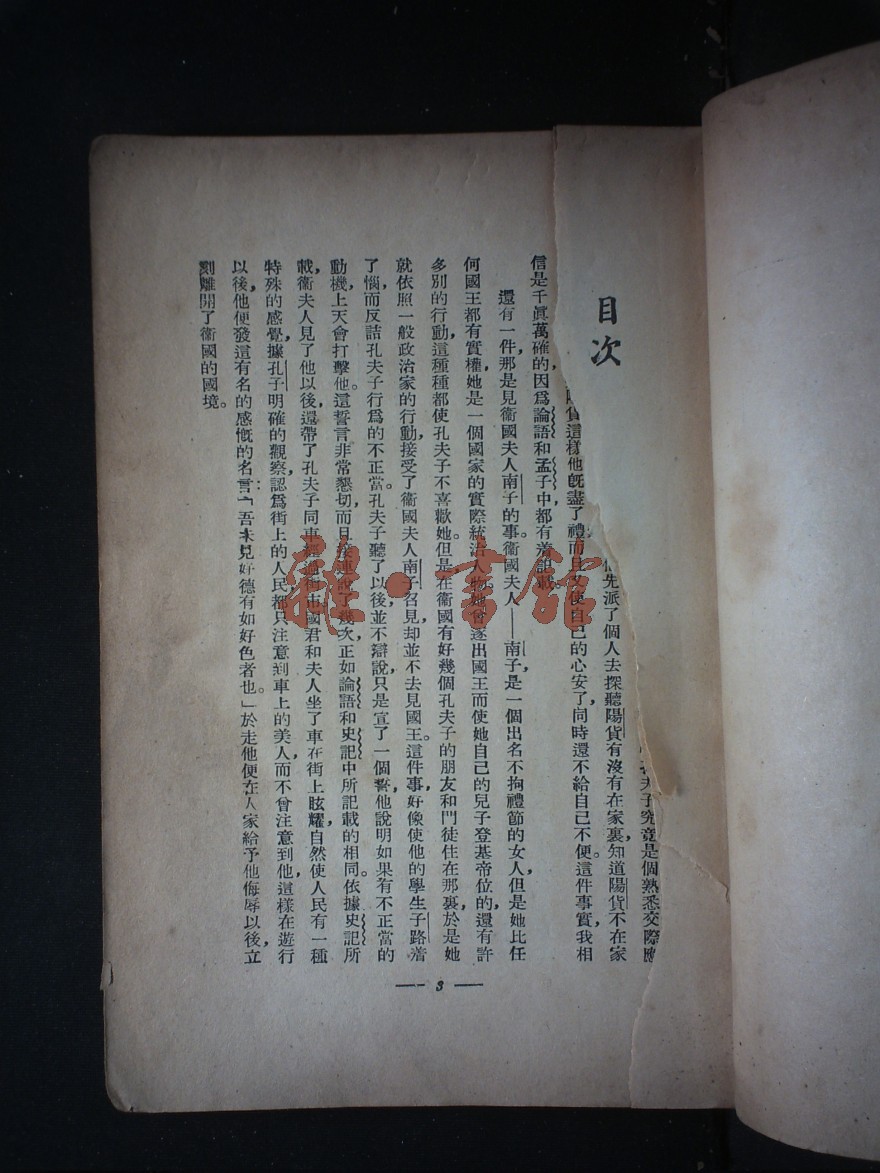 目次
夫子究竟是個熟悉交際應
先派了個人去探聽陽貨有沒有在家裏知道陽貨不在家
陽貨這樣他既盡了禮而且又使自己的心安了,同時還不給自己不便。這件事實,我相
信是千眞萬確的,因爲論語和孟子中都有着記載
還有一件,那是見衞國夫人南子的事。衞國夫人——南子,是一個出名不拘禮節的女人,但是她比任
何國王都有實權,她是一個國家的實際統治人物,她曾逐出國王而使她自己的兒子登基帝位的,還有許
多別的行動,這種種都使孔夫子不喜歡她。但是,在衞國有好幾個孔夫子的朋友和門徒住在那裏,於是她
就依照一般政治家的行動,接受了衞國夫人南子召見,却並不去見國王。這件事,好像使他的學生子路着
了惱,而反詰孔夫子行爲的不正當。孔夫子聽了以後,並不辯說,只是宣了一個誓,他說明如果有不正當的
動機,上天會打擊他。這誓言非常懇切,而且接連說了幾次,正如論語和史記中所記載的相同。依據史記所
載,衞夫人見了他以後,還帶了孔夫子同車經過街市,國君和夫人坐了車在街上眩耀,自然使人民有一種
特殊的感覺,據孔子明確的觀察,認爲街上的人民都只注意到車上的美人,而不曾注意到他,這樣在遊行
以後,他便發這有名的感慨的名言:「吾未見好德有如好色者也。」於走他便在人家給予他侮辱以後,立
刻離開了衞國的國境。
— 3 —
雜·書館